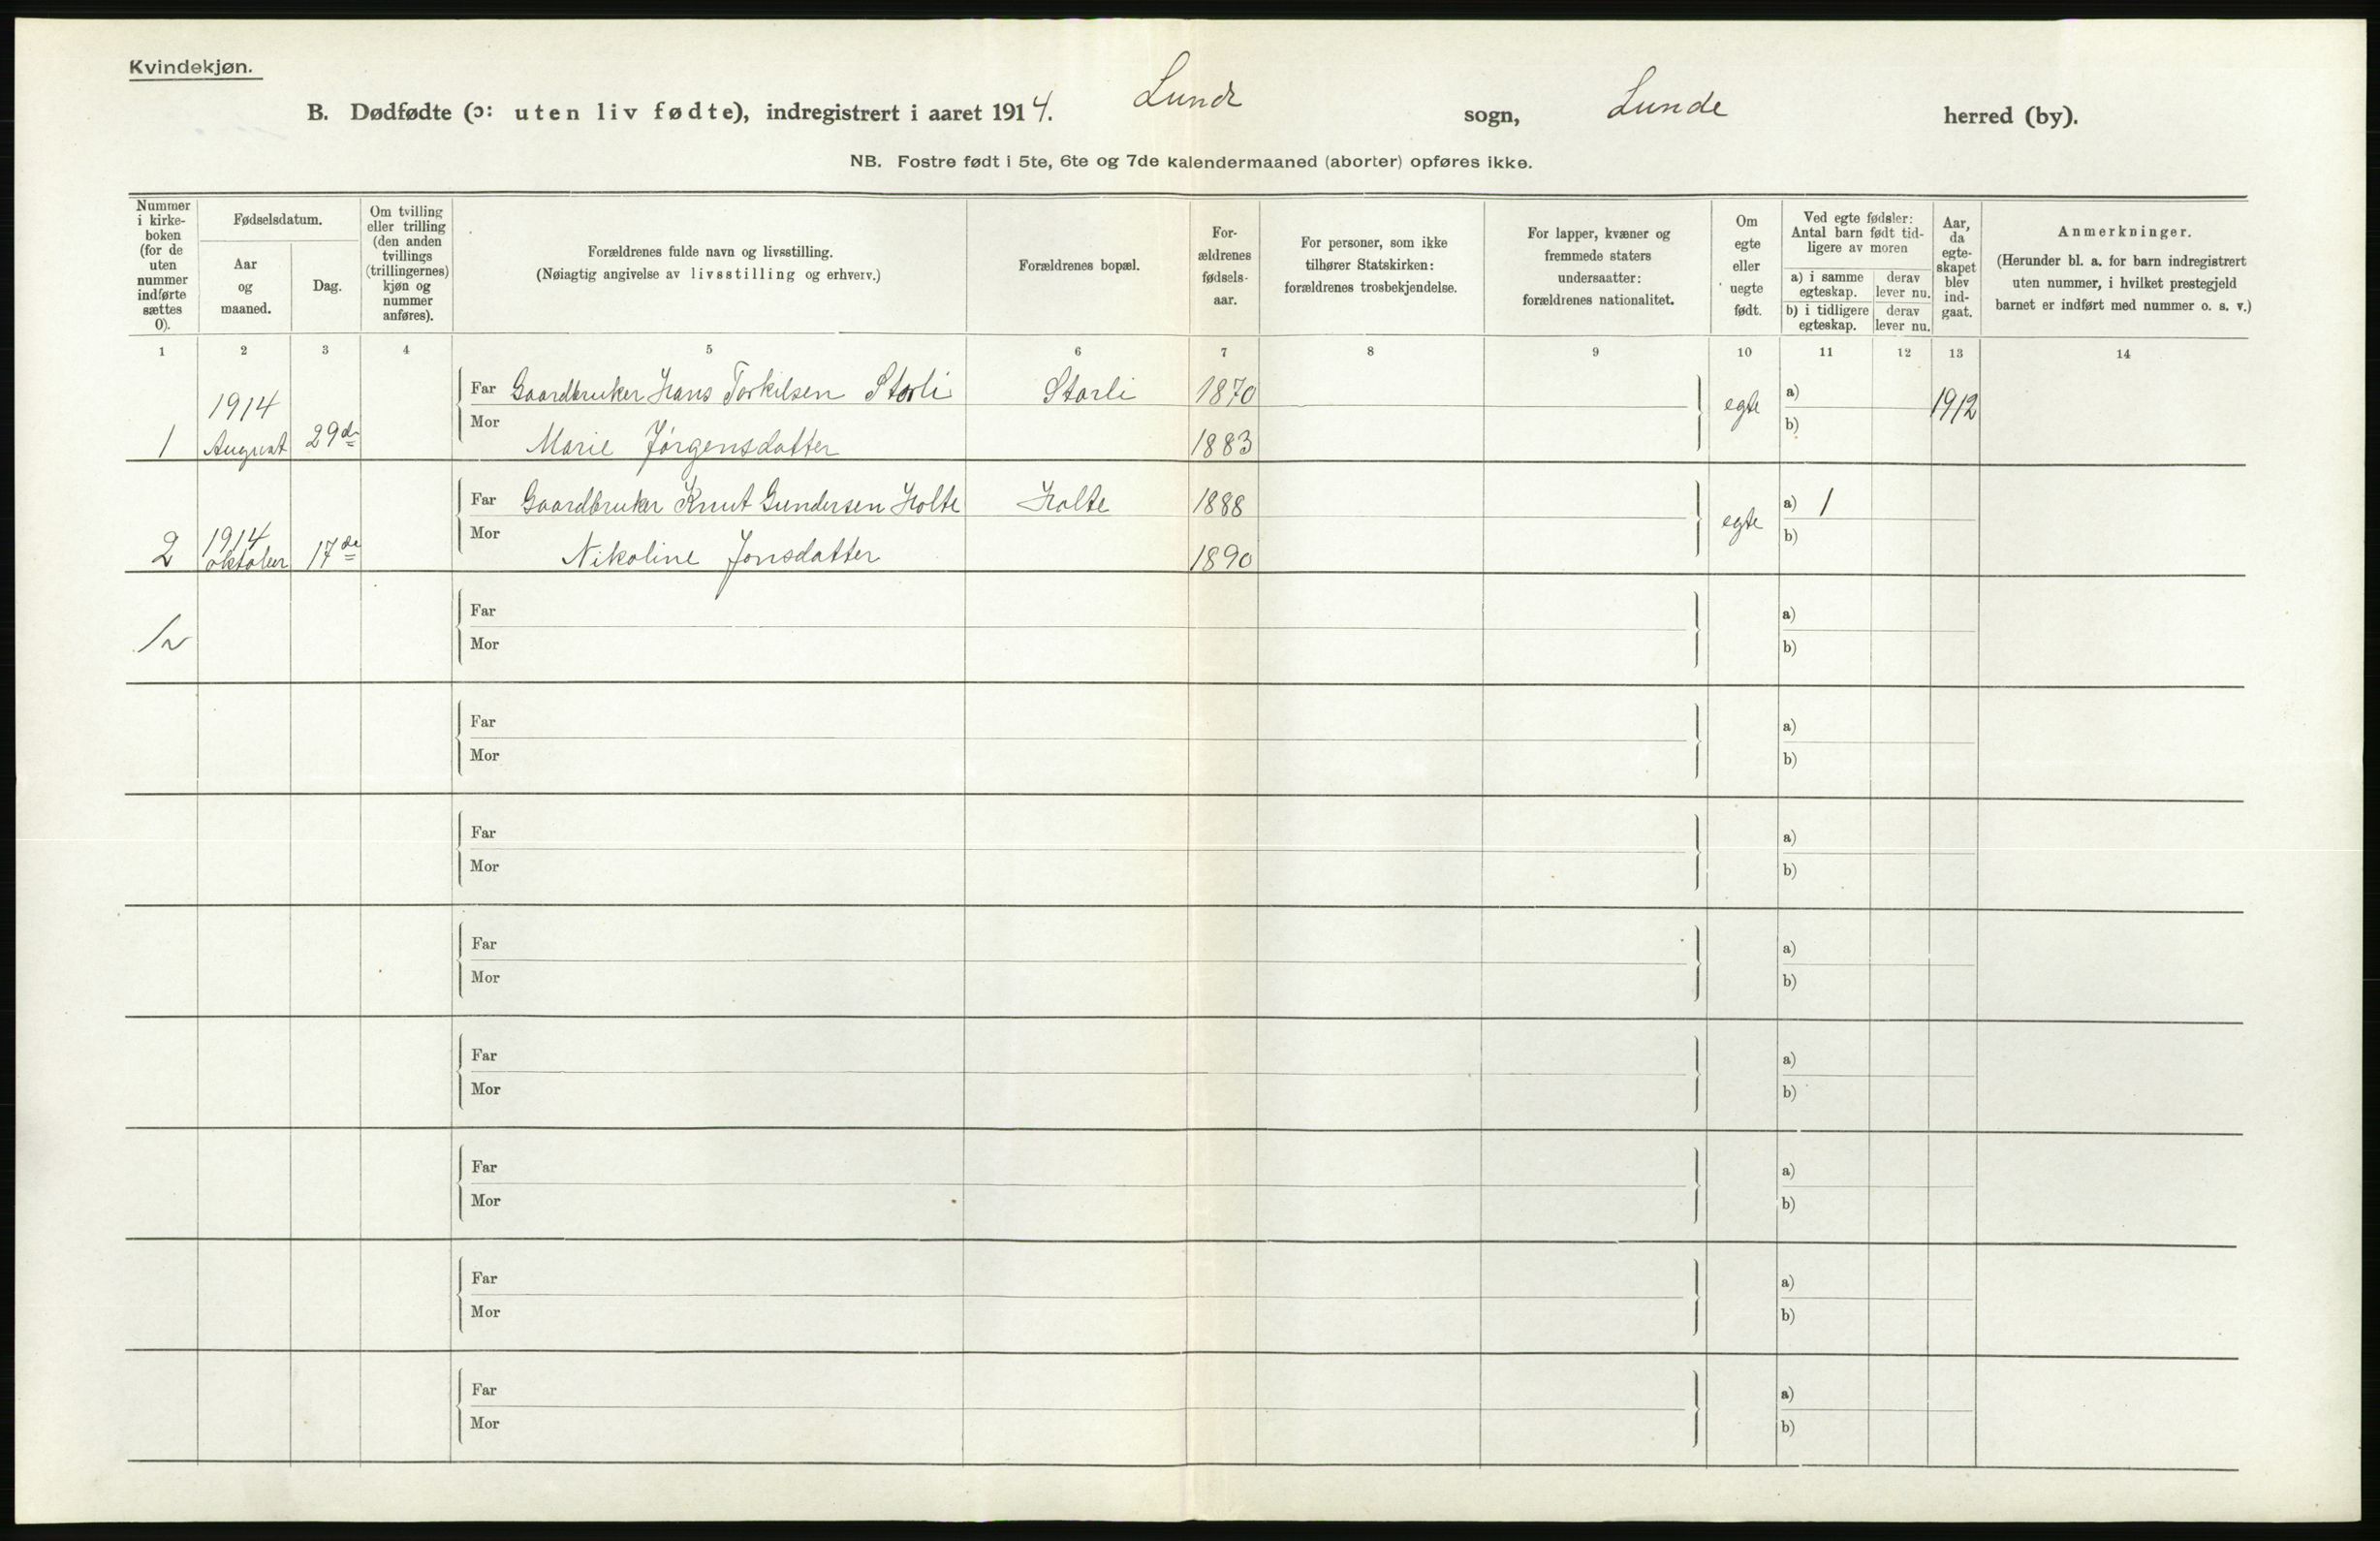 Kvindekjøn.
B. Dødfødte (ɔ: uten liv fødte), indregistrert i aaret 1914. Lunde sogn, Lunde herred (by).
NB. Fostre født i 5te, 6te og 7de kalendermaaned (aborter) opføres ikke.
Nummer
i kirke-
boken
(for de
uten
nummer
indførte
sættes
0).
Fødselsdatum.
Aar
og
maaned.
Dag.
Om tvilling
eller trilling
(den anden
tvillings
(trillingernes)
kjøn og
nummer
anføres).
Forældrenes fulde navn og livsstilling.
(Nøiagtig angivelse av livsstilling og erhverv.)
Forældrenes bopæl.
For-
ældrenes
fødsels-
aar.
For personer, som ikke
tilhører Statskirken:
forældrenes trosbekjendelse.
For lapper, kvæner og
fremmede staters
undersaatter:
forældrenes nationalitet.
Om
egte
eller
uegte
født.
Ved egte fødsler:
Antal barn født tid-
ligere av moren
a) i samme
egteskap.
derav
lever nu.
b) i tidligere
egteskap.
derav
lever nu.
Aar,
da
egte-
skapet
blev
ind-
gaat.
Anmerkninger.
(Herunder bl. a. for barn indregistrert
uten nummer, i hvilket prestegjeld
barnet er indført med nummer o. s. v.)
1 2 3 4 5 6 7 8 9 10 11 12 13 14
1914 Far Gaardbruker Hans Torkilsen Storli Storli 1870 egte a) 1912
1 August 29de Mor Marie Jørgensdatter 1883 b)
Far Gaardbruker Knut Gundersen Holte Holte 1888 egte a) 1
2 1914 oktober 17de Mor Nikoline Jonsdatter 1890 b)
Far a)
Mor b)
Far a)
Mor b)
Far a)
Mor b)
Far a)
Mor b)
Far a)
Mor b)
Far a)
Mor b)
Far a)
Mor b)
Far a)
Mor b)